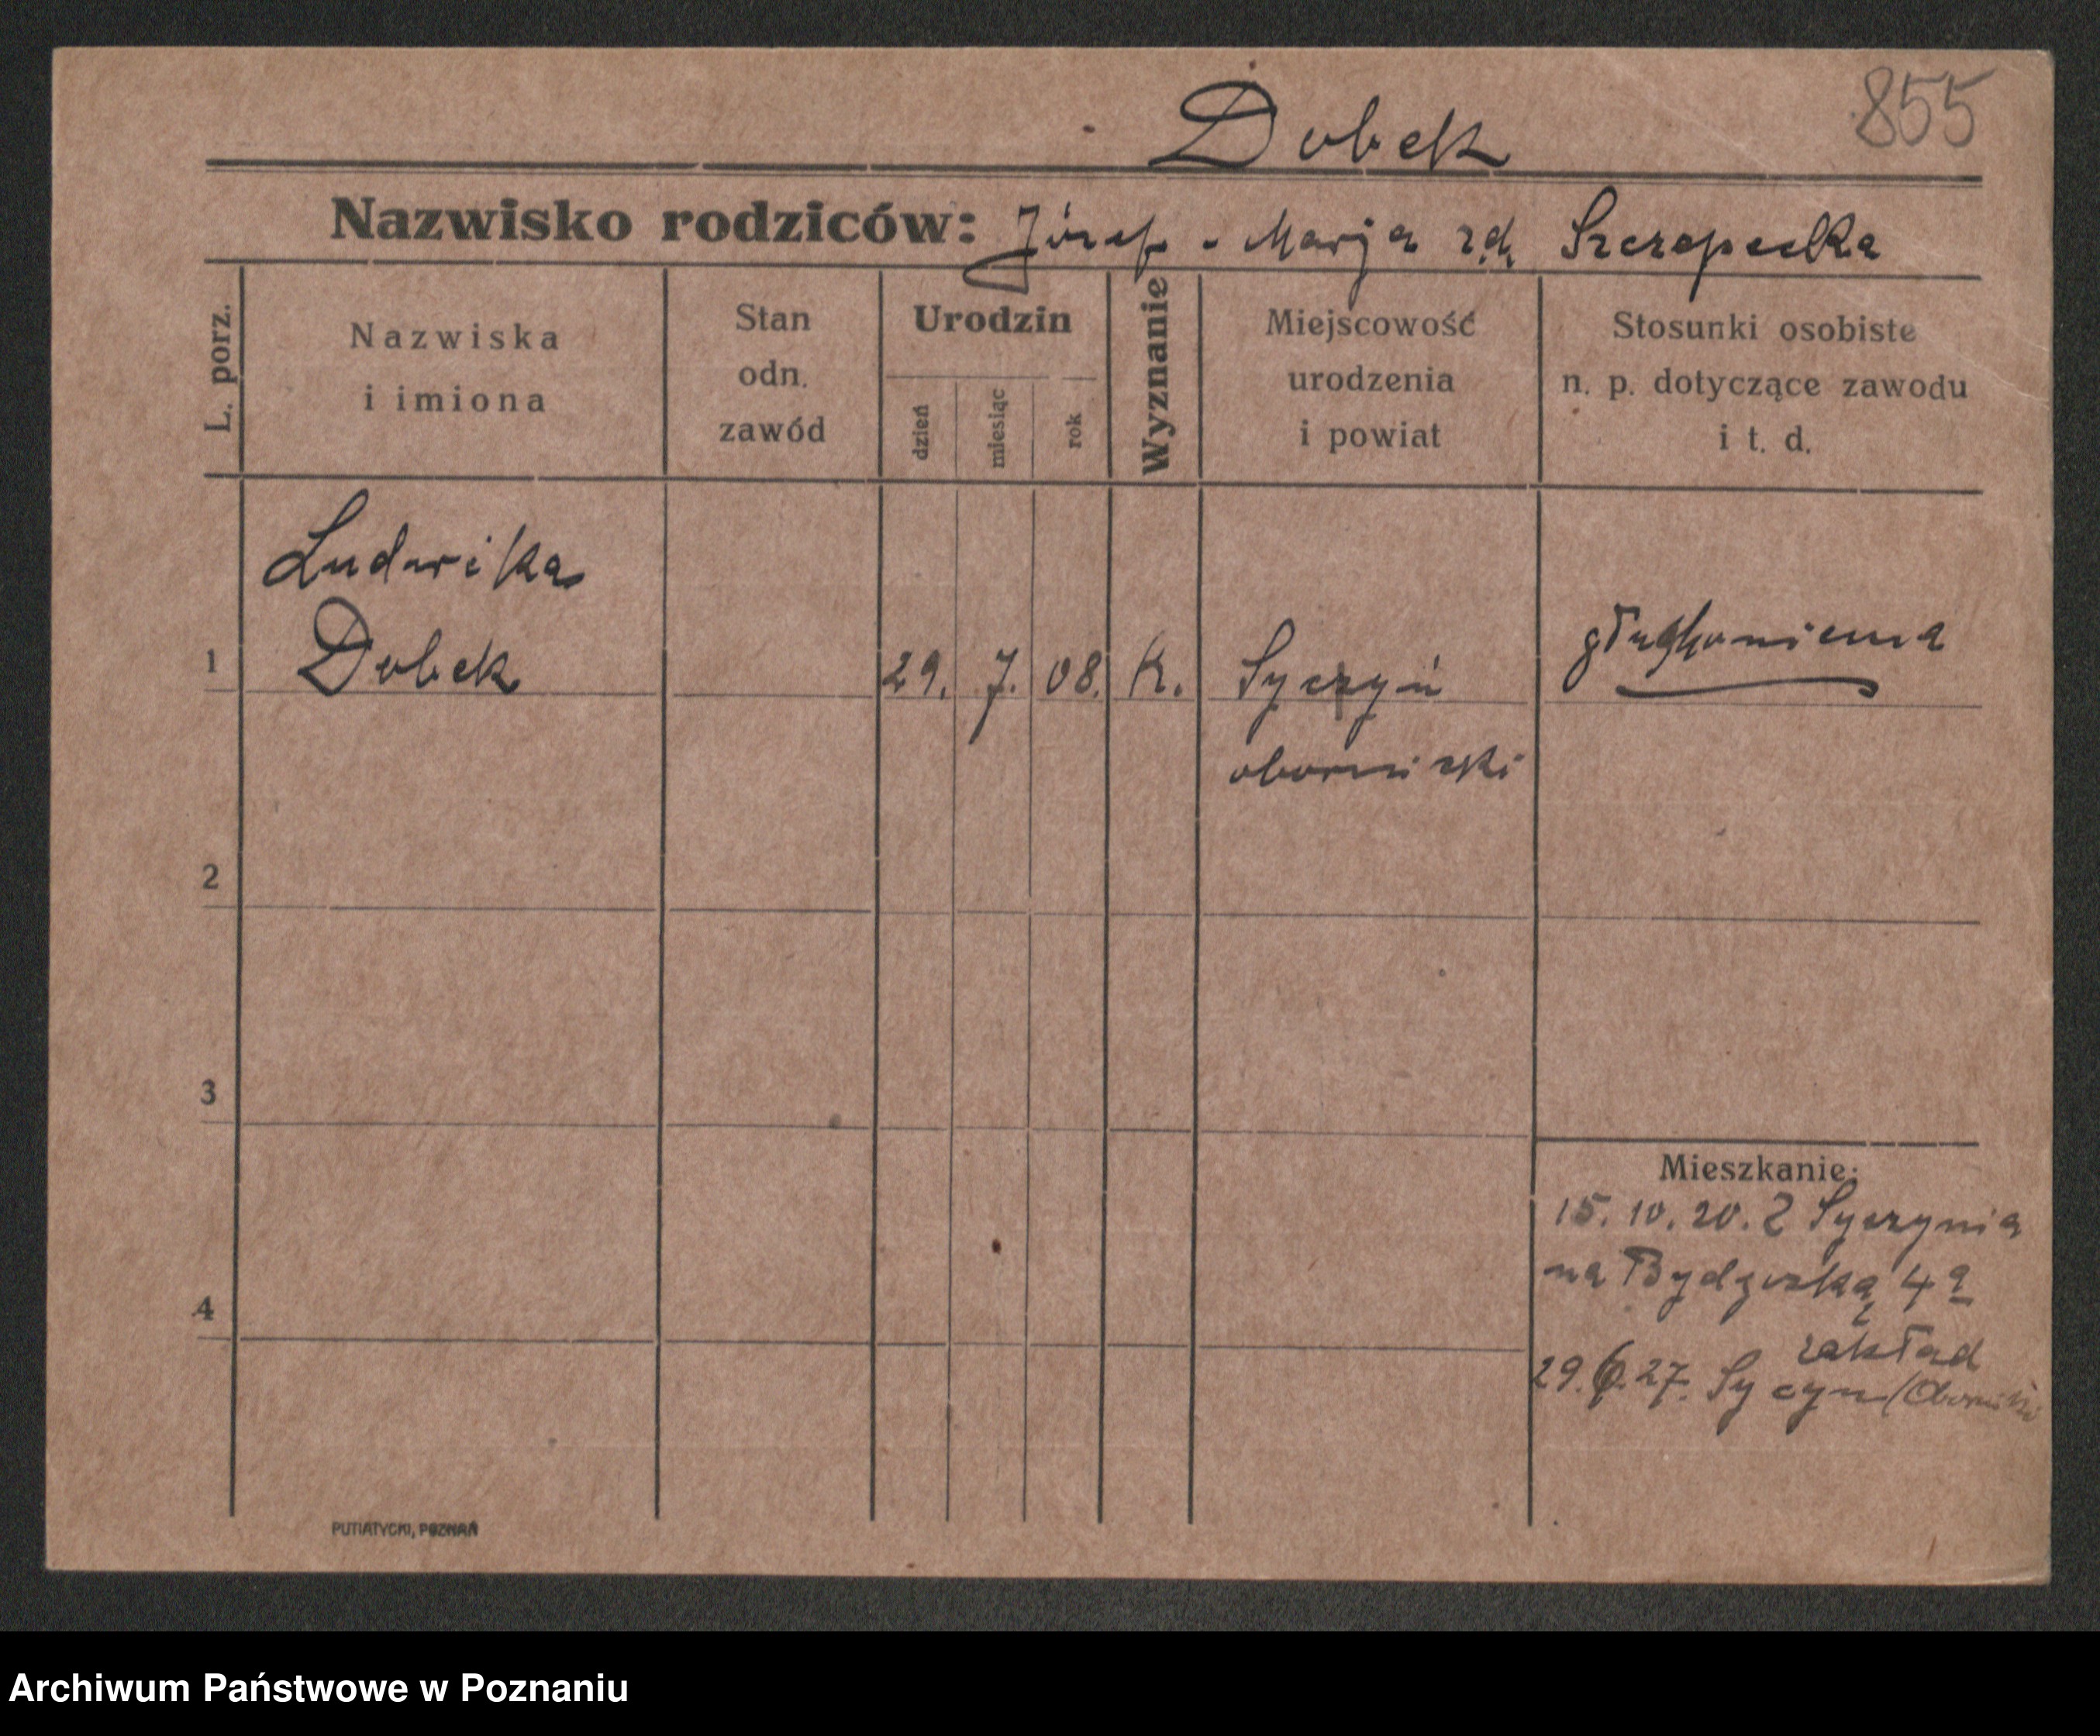 Dobek
855
Nazwisko rodziców: Józef - Marja z d. Szczepecka
L. porz.
Nazwiska
i imiona
Stan
odn.
zawód
Urodzin
dzień
miesiąc
rok
Wyznanie
Miejscowość
urodzenia
i powiat
Stosunki osobiste
n. p. dotyczące zawodu
i t. d.
Ludwika
1 Dobek 29. 7. 08. K. Syczyń głuchoniema
obornicki
2
3
4
Mieszkanie:
15. 10. 20. Z Syczynia
na Bydgoską 4a
zakład
29. 6. 27. Sycyn (Oborniki
PUTIATYCKI, POZNAŃ
Archiwum Państwowe w Poznaniu